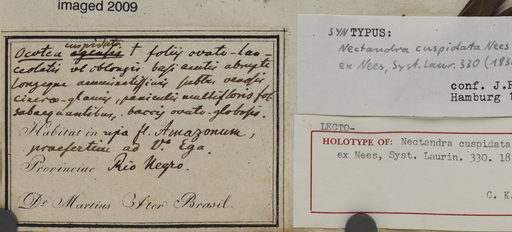 imaged 2009
cuspidata
Ocotea † foliis ovato-lan-
ceolatis vel oblongis basi acutis abrupte
longeque acuminatissimis subtus
cinereo-glaucis, paniculis multifloris fol.
subaequantibus, baccis ovato-globosis.
Habitat in ripa fl. Amazonum,
praesertim ad Va. Ega.
Provinciae Rio Negro.
Dr. Martius Iter Brasil.
SYNTYPUS:
Nectandra cuspidata Nees
ex Nees, Syst. Laur. 330 (183
conf. J.R
Hamburg 1
LECTO-
HOLOTYPE OF: Nectandra cuspidata
ex Nees, Syst. Laurin. 330. 18
C. K.